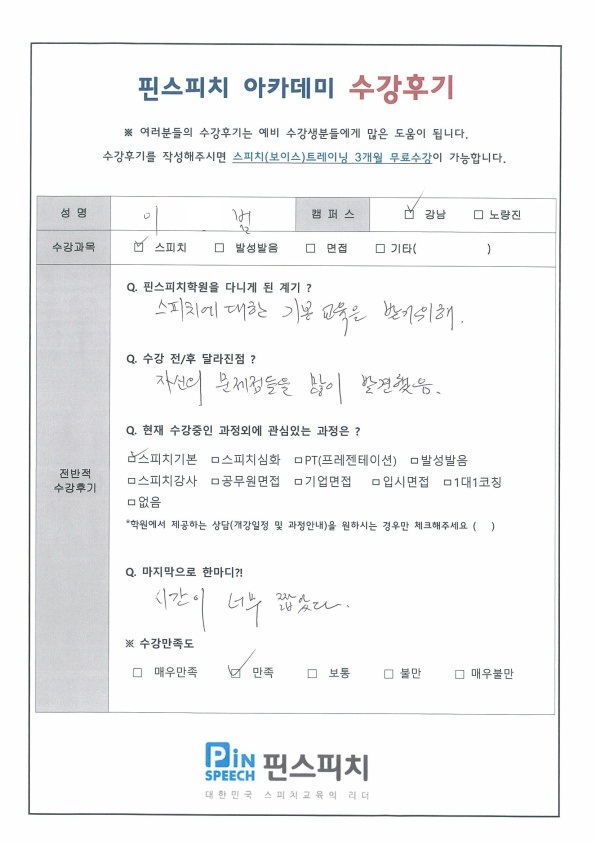 핀스피치 아카데미 수강후기
※ 여러분들의 수강후기는 예비 수강생분들에게 많은 도움이 됩니다.
수강후기를 작성해주시면 스피치(보이스)트레이닝 3개월 무료수강이 가능합니다.
성 명 이 범 캠 퍼 스 ☑ 강남 □ 노량진
수강과목 ☑ 스피치 □ 발성발음 □ 면접 □ 기타( )
Q. 핀스피치학원을 다니게 된 계기 ?
스피치에 대한 기본 교육을 받기위해.
Q. 수강 전/후 달라진점 ?
자신의 문제점들을 많이 발견했음.
Q. 현재 수강중인 과정외에 관심있는 과정은 ?
전반적
수강후기
☑스피치기본 □스피치심화 □PT(프레젠테이션) □발성발음
□스피치강사 □공무원면접 □기업면접 □입시면접 □1대1코칭
□없음
*학원에서 제공하는 상담(개강일정 및 과정안내)을 원하시는 경우만 체크해주세요 ( )
Q. 마지막으로 한마디?!
시간이 너무 짧았다.
※ 수강만족도
□ 매우만족 ☑ 만족 □ 보통 □ 불만 □ 매우불만
PiN
SPEECH 핀스피치
대한민국 스피치교육의 리더